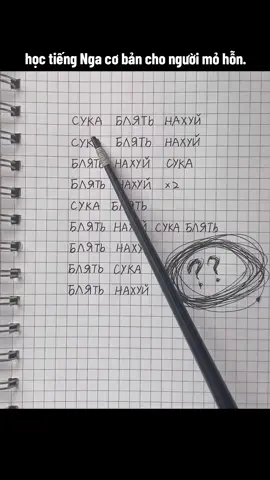 học tiếng Nga cơ bản cho người mỏ hỗn.
СУКА БЛЯТЬ НАХУЙ
СУКА БЛЯТЬ НАХУЙ
БЛЯТЬ НАХУЙ СУКА
БЛЯТЬ НАХУЙ x2
СУКА БЛЯТЬ
БЛЯТЬ НАХУЙ СУКА БЛЯТЬ
БЛЯТЬ НАХУЙ
БЛЯТЬ СУКА ??
БЛЯТЬ НАХУЙ